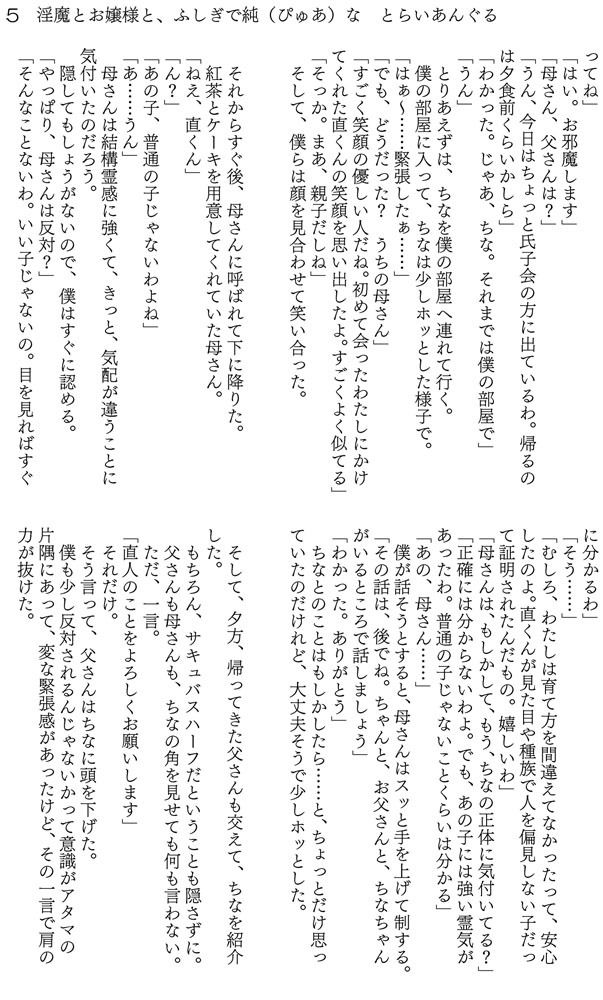 5　淫魔とお嬢様と、ふしぎで純（ぴゅあ）な　とらいあんぐる
ってね」
「はい。お邪魔します」
「母さん、父さんは？」
「うん、今日はちょっと氏子会の方に出ているわ。帰るの
は夕食前くらいかしら」
「わかった。じゃあ、ちな。それまでは僕の部屋で」
「うん」
　とりあえずは、ちなを僕の部屋へ連れて行く。
　僕の部屋に入って、ちなは少しホッとした様子で。
「はぁ～……緊張したぁ……」
「でも、どうだった？　うちの母さん」
「すごく笑顔の優しい人だね。初めて会ったわたしにかけ
てくれた直くんの笑顔を思い出したよ。すごくよく似てる」
「そっか。まあ、親子だしね」
　そして、僕らは顔を見合わせて笑い合った。
　それからすぐ後、母さんに呼ばれて下に降りた。
　紅茶とケーキを用意してくれていた母さん。
「ねえ、直くん」
「ん？」
「あの子、普通の子じゃないわよね」
「あ……うん」
　母さんは結構霊感に強くて、きっと、気配が違うことに
気付いたのだろう。
　隠してもしょうがないので、僕はすぐに認める。
「やっぱり、母さんは反対？」
「そんなことないわ。いい子じゃないの。目を見ればすぐ
に分かるわ」
「そう……」
「むしろ、わたしは育て方を間違えてなかったって、安心
したのよ。直くんが見た目や種族で人を偏見しない子だっ
て証明されたんだもの。嬉しいわ」
「母さんは、もしかして、もう、ちなの正体に気付いてる？」
「正確には分からないわよ。でも、あの子には強い霊気が
あったわ。普通の子じゃないことくらいは分かる」
「あの、母さん……」
　僕が話そうとすると、母さんはスッと手を上げて制する。
「その話は、後でね。ちゃんと、お父さんと、ちなちゃん
がいるところで話しましょう」
「わかった。ありがとう」
　ちなとのことはもしかしたら……と、ちょっとだけ思っ
ていたのだけれど、大丈夫そうで少しホッとした。
　そして、夕方、帰ってきた父さんも交えて、ちなを紹介
した。
　もちろん、サキュバスハーフだということも隠さずに。
　父さんも母さんも、ちなの角を見せても何も言わない。
　ただ、一言。
「直人のことをよろしくお願いします」
　それだけ。
　そう言って、父さんはちなに頭を下げた。
　僕も少し反対されるんじゃないかって意識がアタマの
片隅にあって、変な緊張感があったけど、その一言で肩の
力が抜けた。